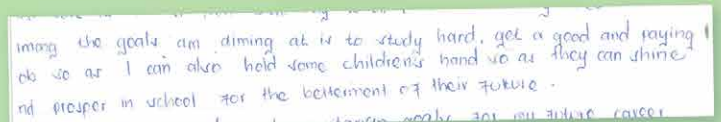 imong the goals am aiming at is to study hard, get a good and paying
ob so as I can also hold some children's hand so as they can shine
nd prosper in school for the betterment of their future.
goals for my future career